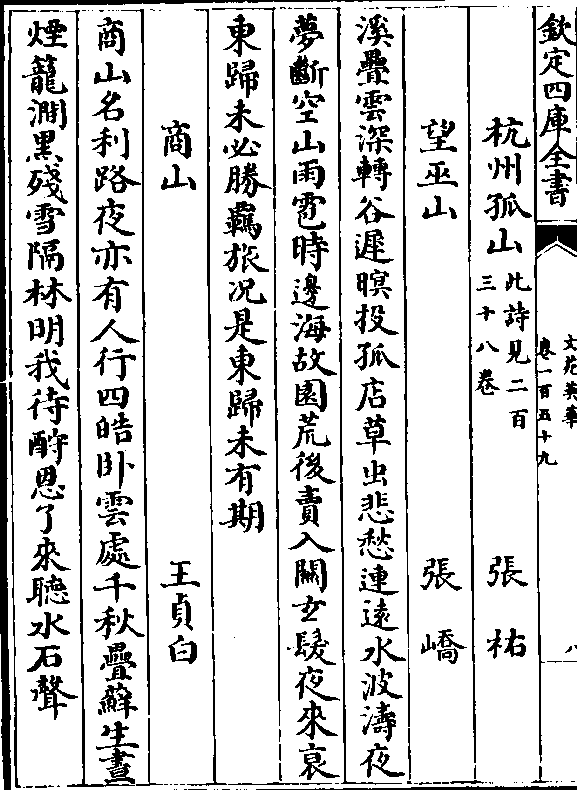 欽定四庫全書
文苑英華
卷一百五十九
八
杭州孤山 此詩見二百三十八卷 張祐
望巫山 張嶠
溪疊雲深轉谷遲暝投孤店草虫悲愁連遠水波濤夜
夢斷空山雨雹時邊海故園荒後賣入關玄髮夜來哀
東歸未必勝羈旅况是東歸未有期
商山 王貞白
商山名利路夜亦有人行四皓卧雲處千秋疊蘚生晝
煙籠澗黑殘雪隔林明我待酧恩了來聽水石聲